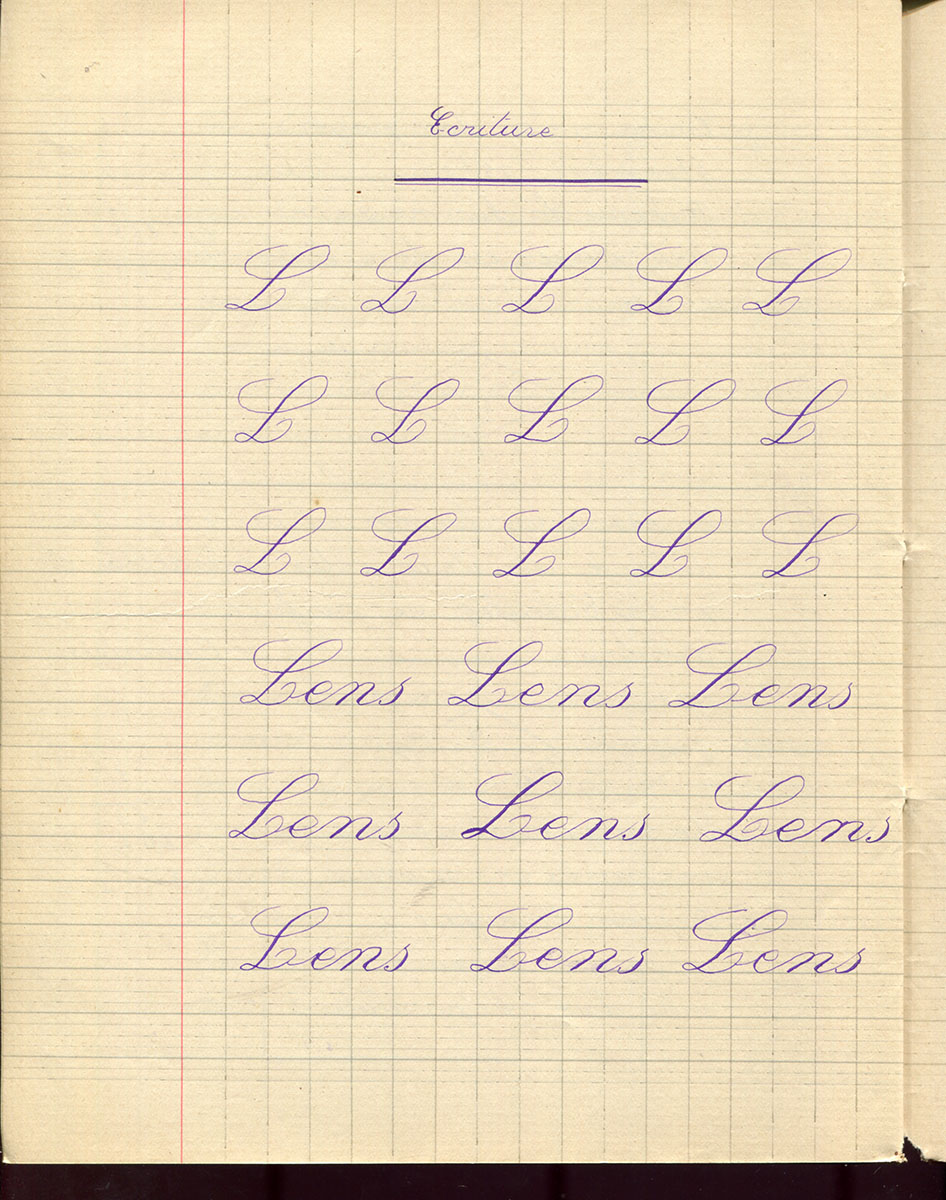 Ecriture
L L L L L
L L L L L
L L L L L
Lens Lens Lens
Lens Lens Lens
Lens Lens Lens